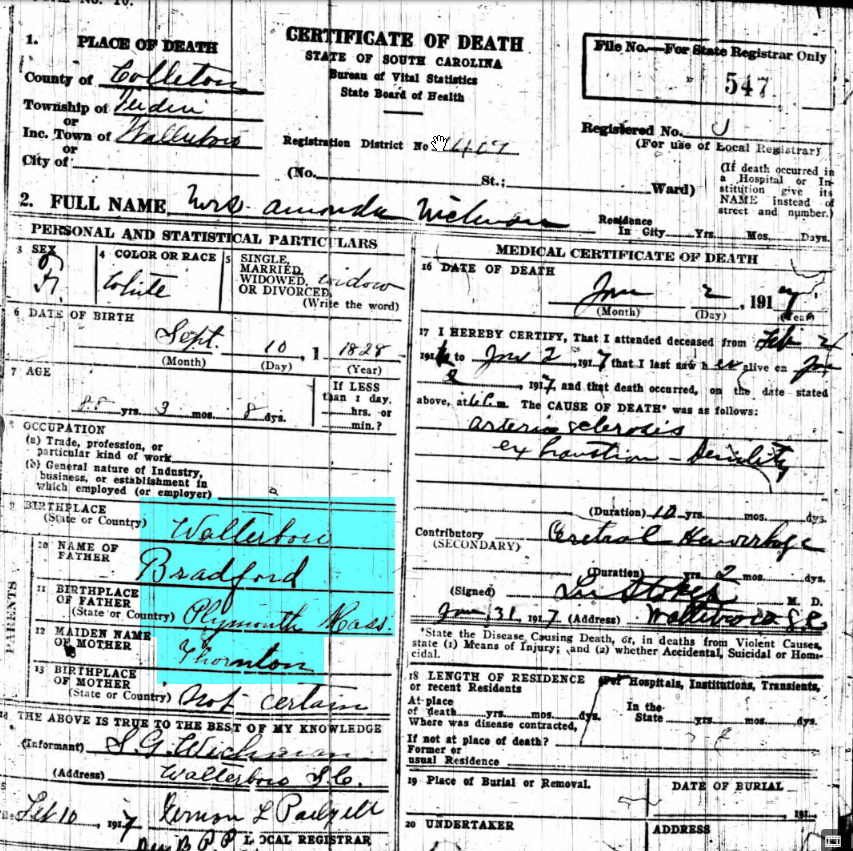 CERTIFICATE OF DEATH
STATE OF SOUTH CAROLINA
Bureau of Vital Statistics
State Board of Health
File No.—For State Registrar Only
547
1. PLACE OF DEATH
County of Colleton
Township of
or
Inc. Town of Walterboro
or
City of
Registration District No
Registered No.
(For use of Local Registrar)
(No. St.; Ward)
(If death occurred in
a Hospital or In-
stitution give its
NAME instead of
street and number.)
2. FULL NAME Mrs Amanda Wichman
Residence
In City Yrs. Mos. Days.
PERSONAL AND STATISTICAL PARTICULARS
3 SEX
F
4 COLOR OR RACE
White
5 SINGLE,
MARRIED,
WIDOWED,
OR DIVORCED,
widow
(Write the word)
6 DATE OF BIRTH
Sept. 10, 1 1828
(Month) (Day) (Year)
7 AGE
88 yrs. 3 mos. 8 dys.
If LESS
than 1 day,
hrs. or
min.?
8 OCCUPATION
(a) Trade, profession, or
particular kind of work
(b) General nature of Industry,
business, or establishment in
which employed (or employer)
9 BIRTHPLACE
(State or Country) Walterboro
PARENTS
10 NAME OF
FATHER Bradford
11 BIRTHPLACE
OF FATHER
(State or Country) Plymouth Mass.
12 MAIDEN NAME
OF MOTHER Thornton
13 BIRTHPLACE
OF MOTHER
(State or Country) Not certain
14 THE ABOVE IS TRUE TO THE BEST OF MY KNOWLEDGE
(Informant) S.G. Wichman
(Address) Walterboro S.C.
Feb 10, 1917 Vernon L Padgett
LOCAL REGISTRAR
MEDICAL CERTIFICATE OF DEATH
16 DATE OF DEATH
Jan 2, 1917
(Month) (Day) (Year)
17 I HEREBY CERTIFY, That I attended deceased from Feb
191 to Jan 2, 1917 that I last saw her alive on Jan
2, 1917, and that death occurred, on the date stated
above, at The CAUSE OF DEATH* was as follows:
arterio sclerosis
exhaustion - Senility
(Duration) 10 yrs. mos. dys.
Contributory
(SECONDARY) Cerebral Hemorrhage
(Duration) 2 yrs. mos. dys.
(Signed) Stokes M. D.
Jan 31, 1917 (Address) Walterboro S.C.
*State the Disease Causing Death, or, in deaths from Violent Causes,
state (1) Means of Injury; and (2) whether Accidental, Suicidal or Homi-
cidal.
18 LENGTH OF RESIDENCE (For Hospitals, Institutions, Transients,
or recent Residents
At place
of death yrs. mos. dys.
In the
State yrs. mos. dys.
Where was disease contracted,
if not at place of death?
Former or
usual Residence
19 Place of Burial or Removal.
DATE OF BURIAL
191
20 UNDERTAKER
ADDRESS